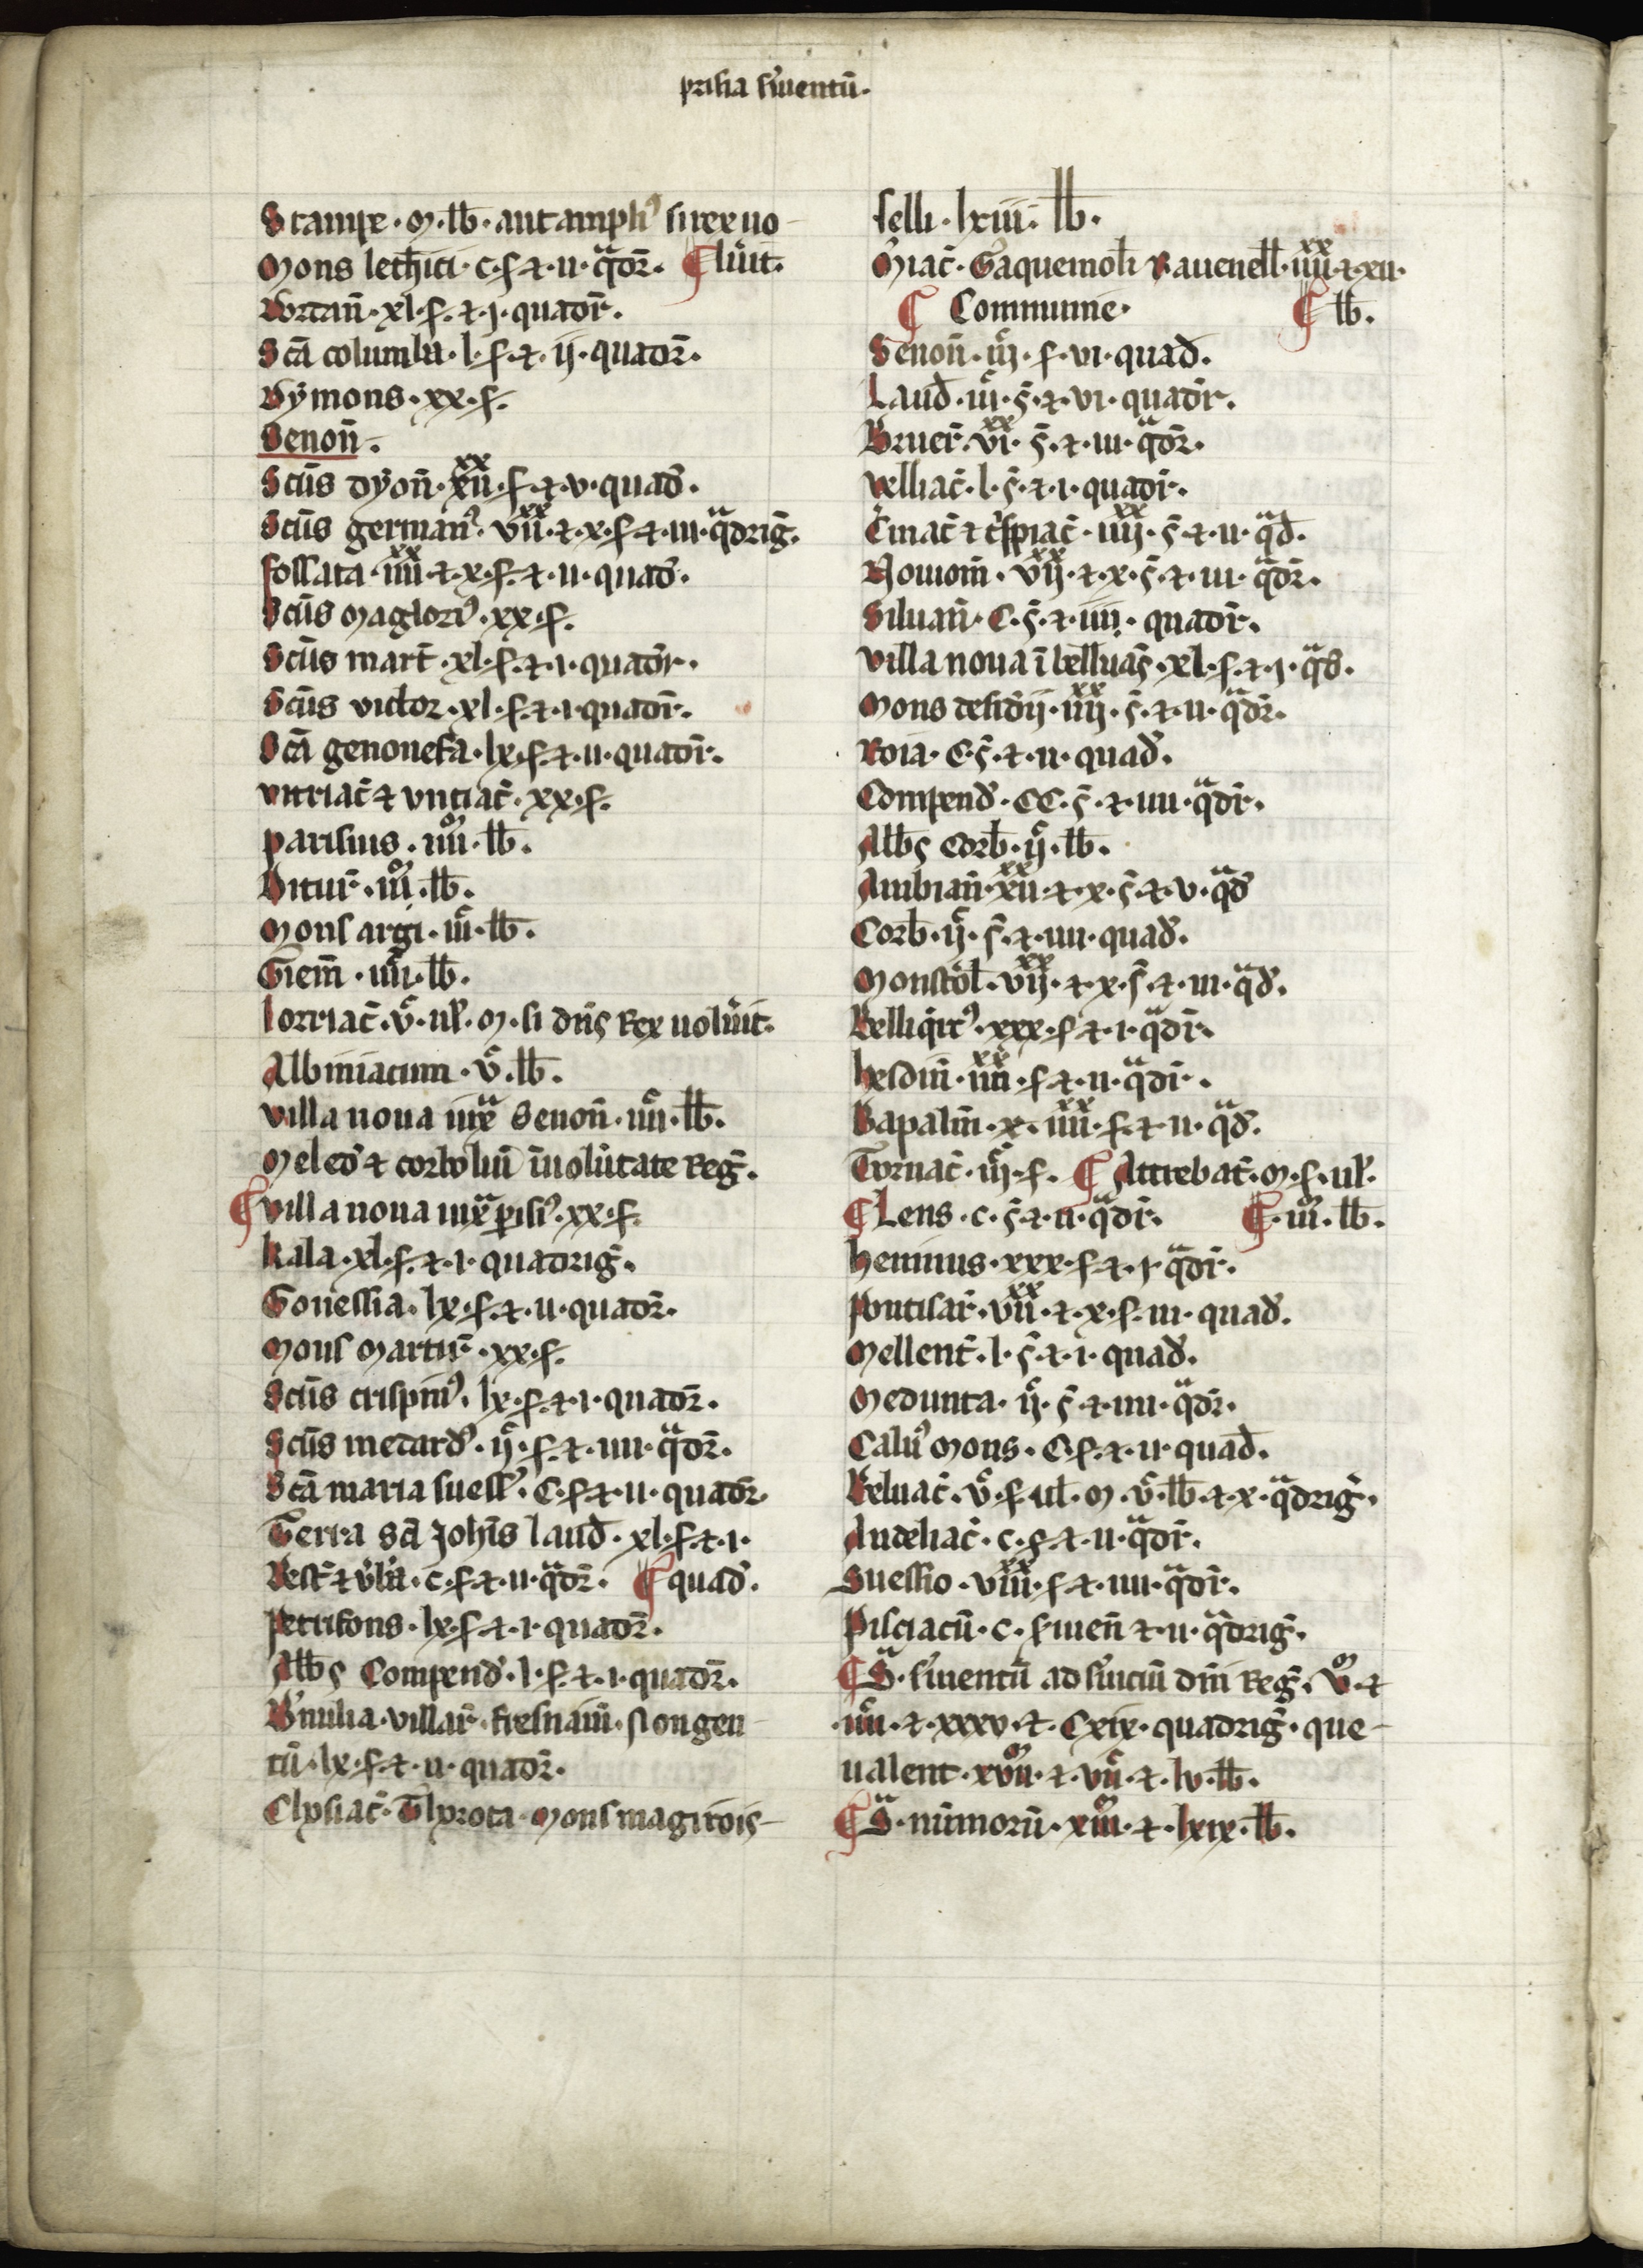 prisia ẜuientū.
Stampe . M . lb̄ . aut ampli⁹ si rex uo-
Mons lethici . c . ẜ . ⁊ . ii . qͣdꝛ̄ . ¶ luͥit.
Dordan̄ . xl . ẜ . ⁊ . j . quadr̄ .
Sc̄a columba . l . ẜ . ⁊ . ij . quadꝛ̄ .
Dymons . xx . ẜ .
Senon̄ .
Sc̄us dyon̄ . xiiˣˣ . ẜ ⁊ . v . quad̄ .
Sc̄us german⁹ . viiˣˣ . ⁊ . x . ẜ ⁊ . iii . qͣdriḡ .
fossata . iiiiˣˣ ⁊ . x . ẜ . ⁊ . ii . quad̄ .
Sc̄us Maglori⁹ . xx . ẜ .
Sc̄us mart̄ . xl . ẜ . ⁊ . i . quadr̄ .
Sc̄us victor . xl . ẜ . ⁊ . i . quadr̄ .
Sc̄a genouefa . lx . ẜ . ⁊ . ii . quadr̄ .
vitriac̄ ⁊ vntiac̄ . xx . ẜ .
parisius . iiiiᵒʳ . lb̄ .
Bitur̄ . iiiᵐ . lb̄ .
Mons argi . iiiᶜ . lb̄ .
Giem̄ . iiiiᶜ . lb̄ .
lorriac̄ . vᶜ . ul̄ . M . si dn̄s Rex uoluͥit .
Albiniacum . vᶜ . lb̄ .
villa noua iuxͣ Senon̄ . iiiiᶜ . lb̄ .
Meled̄ ⁊ corboliū ī uolūtate Reḡ .
¶ villa noua iuxͣ p̱isi⁹ . xx . ẜ .
kala . xl . ẜ . ⁊ . i . quadriḡ .
Gonessia . lx . ẜ . ⁊ . ii . quadꝛ̄ .
Mons Martir̄ . xx . ẜ .
Sc̄us crispin⁹ . lx . ẜ . ⁊ . i . quadꝛ̄ .
Sc̄us medard⁹ . ijᶜ . ẜ . ⁊ . iiii . qͣdꝛ̄ .
Sc̄a maria suess̄ . C . ẜ ⁊ . ii . quadꝛ̄
Terra sc̄i Joh̄is laud̄ . xl . ẜ ⁊ . i .
Vest̄ ⁊ v̄b̄ia . c . ẜ ⁊ . ii . qͣdꝛ̄ . ¶ quad̄ .
petrifons . lx . ẜ ⁊ . i . quadꝛ̄ .
Albb̄s Compend̄ . l . ẜ . ⁊ . i . quadꝛ̄ .
V̓nulia . villar̄ . fresnaim̄ . st ongen-
tū . lx . ẜ ⁊ . ii . quadꝛ̄ .
Chysiac̄ . Thyrota . Mons magi rois-
selli . lxiii . lb̄ .
M̓iac̄ . G̓aquemoli Rauenell̄ . iiiiˣˣ . ⁊ . xii .
¶ Commune . ¶ lb̄ .
Senon̄ . iijᶜ . ẜ . vi . quad̄ .
Laud̄ . iijᶜ . ẜ . ⁊ . vi . quadr̄ .
Bruer̄ . viˣˣ . ẜ . ⁊ . iii . qͣdꝛ̄ .
velliac̄ . l . ẜ . ⁊ . i . quadr̄ .
C̓niac̄ ⁊ c̓spiac̄ . iiijˣˣ . ẜ . ⁊ . ii . qͣd̄ .
Nouiom̄ . vijˣˣ . ⁊ . x . ẜ . ⁊ . iii . qͣdr̄ .
Siluan̄ . C . ẜ . ⁊ . iiii . quadr̄ .
villa noua ī belluac̄ . xl . ẜ . ⁊ . j . qͣd̄ .
Mons desid̄ij . iiijˣˣ . ẜ . ⁊ . ii . qͣdr̄ .
Roia . C . ẜ . ⁊ . ii . quad̄ .
Compend̄ . CC . ẜ . ⁊ . iiii . qͣdr̄ .
Albb̄s Corb̄ . ijᶜ . lb̄ .
Ambian̄ . xiiˣˣ . ⁊ . x . ẜ . ⁊ . v . qͣd̄
Corb̄ . ijᶜ . ẜ . ⁊ . iiii . quad̄ .
Monstol̄ . vijˣˣ . ⁊ . x . ẜ . ⁊ . iii . qͣd̄ .
Belliq̄rc⁹ . xxx . ẜ ⁊ . i . qͣdr̄ .
hesdin̄ . iiiiˣˣ . ẜ ⁊ . ii . qͣdr̄ .
Bapalm̄ . x . iiiiˣˣ . ẜ . ⁊ . ii . qͣd̄ .
Tornac̄ . iijᶜ . ẜ . ¶ Attrebac̄ . M . ẜ . ul̄ .
¶ Lens . c . ẜ . ⁊ . ii . qͣdr̄ . ¶ . iiiᵐ . lb̄ .
heminus . xxx . ẜ ⁊ . i . qͣdr̄ .
pontisar̄ . viiˣˣ . ⁊ . x . ẜ . iii . quad̄ .
Mellent̄ . l . ẜ . ⁊ . i . quad̄ .
Medunta . ijᶜ . ẜ . ⁊ . iiii . qͣdr̄ .
Calu⁹ Mons . C . ẜ . ⁊ . ii . quad̄ .
Beluac̄ . vᶜ . ẜ . ul̄ . M . vᶜ . lb̄ . ⁊ . x . qͣdriḡ .
Andeliac̄ . c . ẜ . ⁊ . ii . qͣdr̄ .
Suessio . viiiˣˣ . ẜ ⁊ . iiii . qͣdr̄ .
Pisciacū . c . ẜuien̄ ⁊ . ii . qͣdriḡ .
¶ Sͣ . ẜuientū ad ẜuiciū dn̄i Reḡ . vᵐ . ⁊
. iiiiᶜ . ⁊ . xxxv . ⁊ . Cxix . quadriḡ . que-
ualent . xviiᵐ . ⁊ . viiᶜ . ⁊ . lv . lb̄ .
¶ Sͣ . nūmorū . xiiiᵐ . ⁊ . lxix . lb̄ .